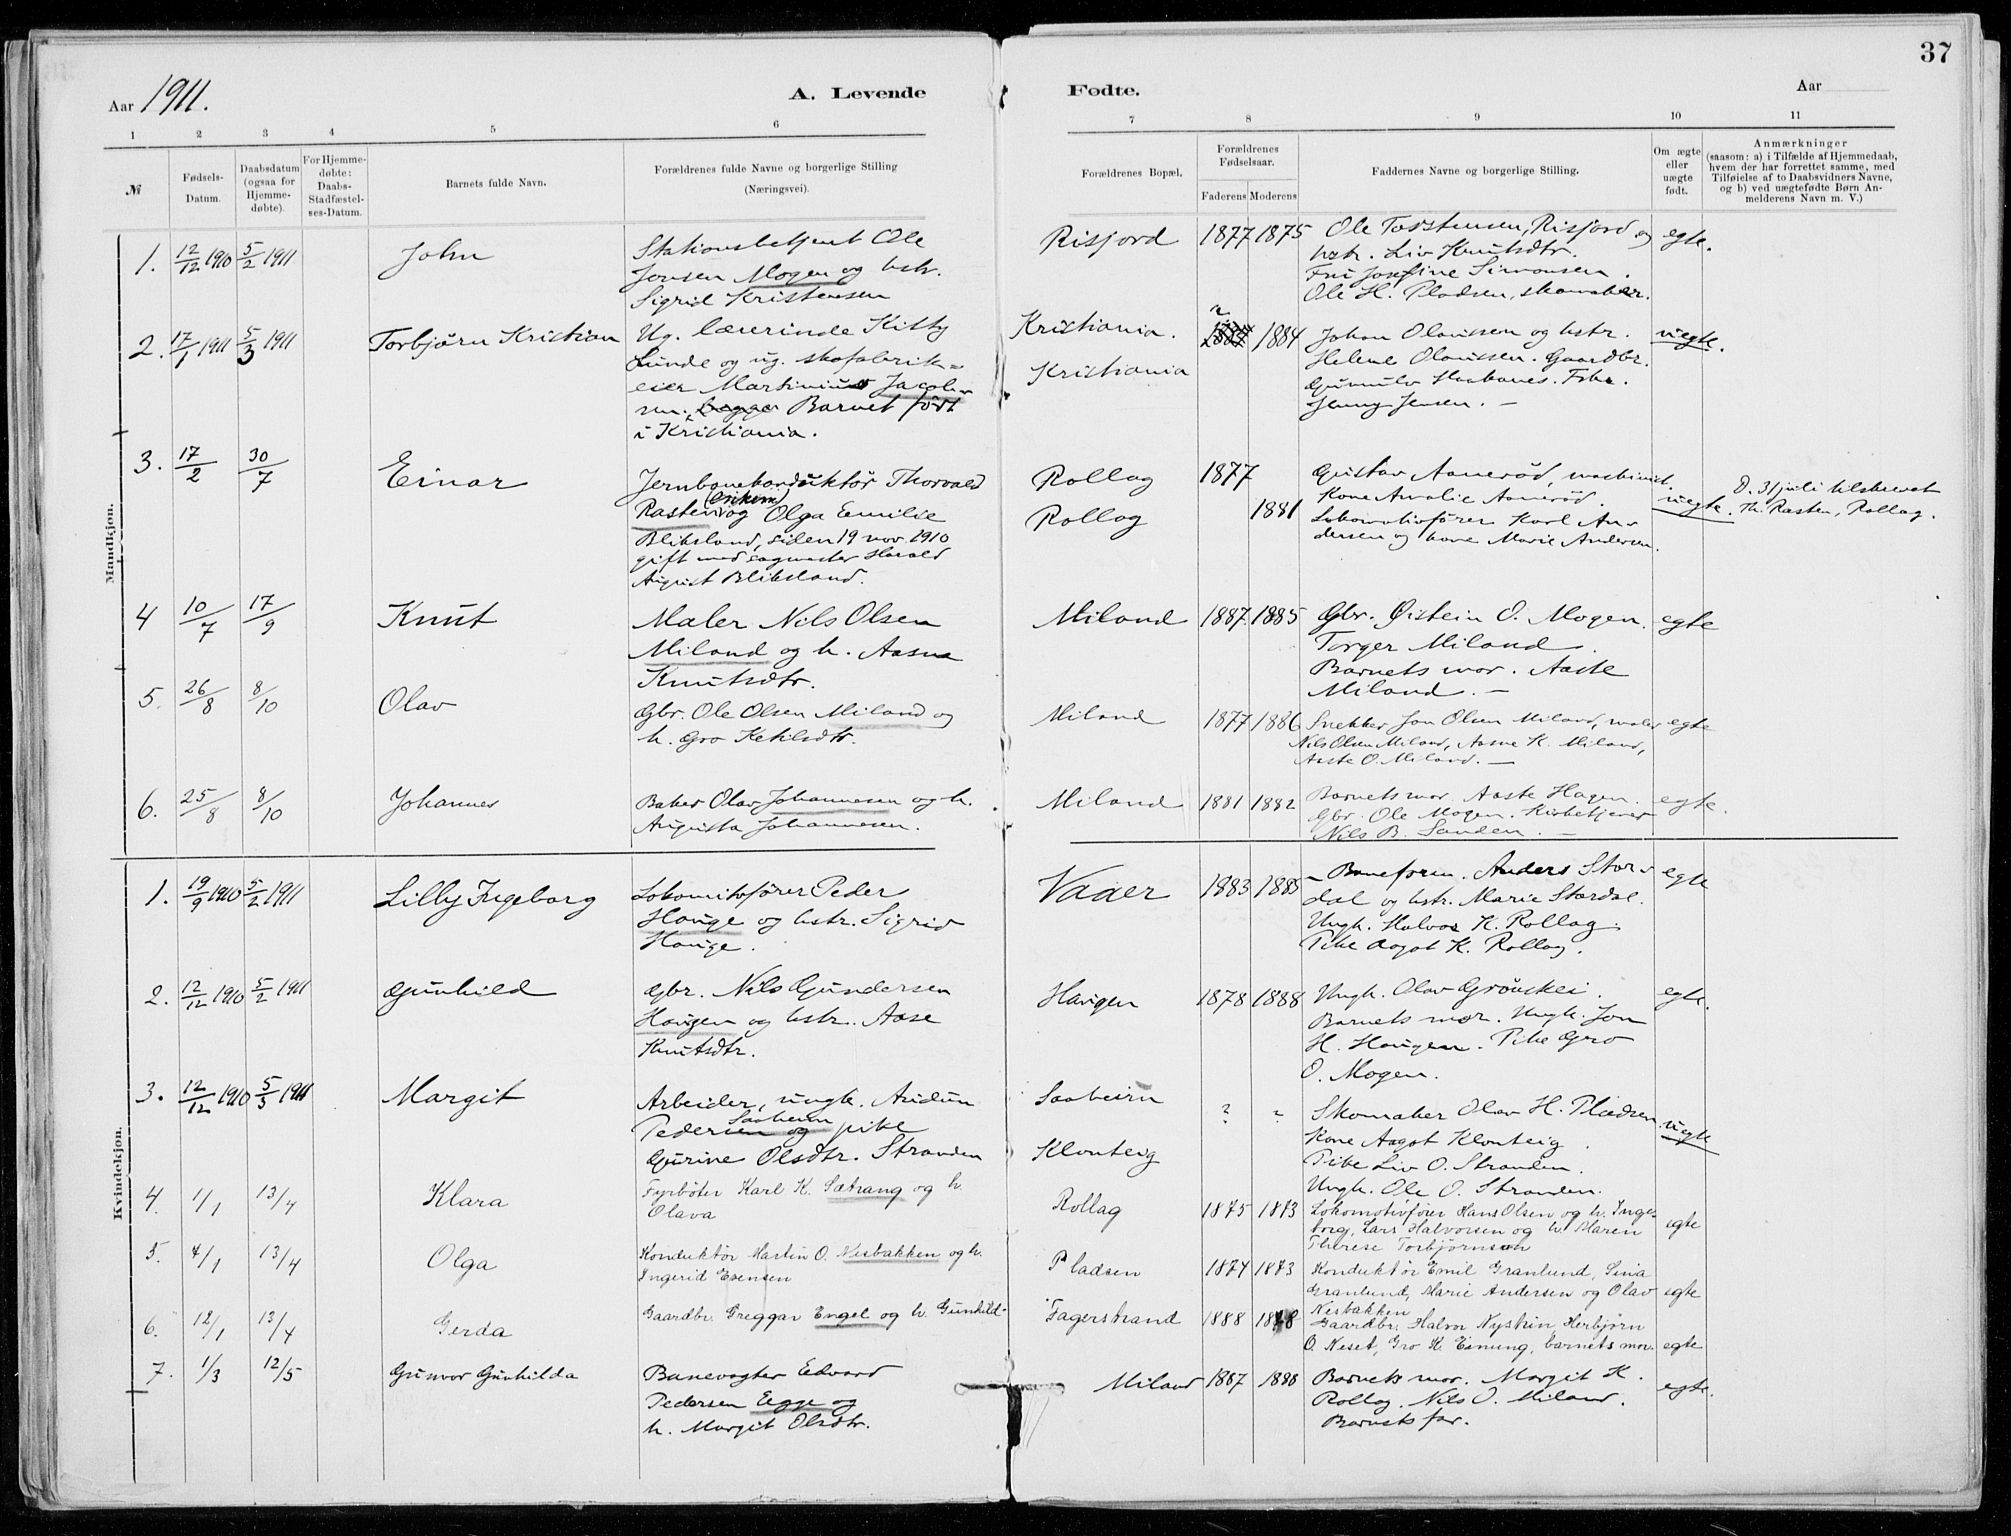 37
Aar 1911.
A. Levende
Fødte.
Aar
1 2 3 4 5 6 7 8 9 10 11
№
Fødsels-Datum.
Daabsdatum (ogsaa for Hjemme-døbte).
For Hjemme-døbte: Daabs-Stadfæstel-ses-Datum.
Barnets fulde Navn.
Forældrenes fulde Navne og borgerlige Stilling (Næringsvei).
Forældrenes Bopæl.
Forældrenes Fødselsaar.
Faderens Moderens
Faddernes Navne og borgerlige Stilling.
Om ægte eller uægte født.
Anmærkninger
(saasom: a) i Tilfælde af Hjemmedaab,
hvem der har forrettet samme, med
Tilføielse af to Daabsvidners Navne,
og b) ved uægtefødte Børn An-
melderens Navn m. V.)
Mandkjøn.
1. 12/12 1910 5/2 1911 John
Stationsbetjent Ole
Jonsen Mogen og hstr.
Sigrid Kristensen
Risjord 1877 1875
Ole Torstensen, Risjord og
hstr. Liv Knutsdtr.
Frk Josefine Simonsen.
Ole H. Pladsen, skomaker.
egte.
2. 17/1 1911 5/3 1911 Torbjørn Kristian
Ug. lærerinde Kitty
Lunde og ug. skofabrik-
eier Martinius Jacob-
sen. begge Barnet født
i Kristiania.
Kristiania.
Kristiania
? 1884
Johan Olaussen og hstr.
Helene Olaussen. Gaardbr.
Gunnulv Haabanes. Frk.
Jenny Jensen. —
uegte.
3. 17/2 30/7 Einar
Jernbanekonduktør Thorvald
Rasten og Olga Emilie
Bliksland, siden 19 nov. 1910
gift med sagmester Harald
August Bliksland.
Rollag 1877
Rollag 1881
Gustav Aanerød, maskinist.
Kone Amalie Aanerød.
Lokomotivfører Karl An-
dersen og kone Marie Andersen.
uegte.
D. 31 juli tilskrevet
Th. Rasten, Rollag.
4 10/7 17/9 Knut
Maler Nils Olsen
Miland og h. Aasne
Knutsdtr.
Miland 1887. 1885
Gbr. Øistein O. Mogen.
Torger Miland.
Barnets mor. Aaste
Miland. —
egte
5. 26/8 8/10 Olav
Gbr. Ole Olsen Miland og
h. Gro Ketilsdtr.
Miland 1877 1886
Snekker Jon Olsen Miland, maler
Nils Olsen Miland, Aasne K. Miland,
Aaste O. Miland. —
egte
6. 25/8 8/10 Johannes
Baker Olav Johannesen og h.
Augusta Johannesen.
Miland 1881 1882
Barnets mor Aaste Hagen.
Gbr. Ole Mogen. Kirketjener
Nils B. Sanden. —
egte.
Kvindekjøn.
1. 19/9 1910 5/2 1911 Lilly Ingeborg
Lokomitofører Peder
Hauge og hstr. Sigrid
Hauge.
Vaaer 1883 1885
Baneform. Anders Stor-
dal og hstr. Marie Stordal.
Ungk. Halvor K. Rollag.
Pike Aagot K. Rollag.
egte
2. 12/12 1910 5/2 1911 Gunhild
Gbr. Nils Gundersen
Haugen og hstr. Aase
Knutsdtr.
Haugen 1878 1888
Ungk. Olav Grøuskei.
Barnets mor. Ungk. Jon
H. Haugen. Pike Gro
O. Mogen.
egte.
3. 12/12 1910 5/3 1911 Margit
Arbeider, ungk. Audun
Saaheim
Pedersen og pike
Gurine Olsdtr. Stranden
Saaheim
Klonteig
? ?
Skomaker Olav H. Pladsen
Kone Aagot Klonteig.
Pike Liv O. Stranden.
Ungk. Ole O. Stranden.
uegte
4. 1/1 13/4 Klara
Fyrbøter Karl K. Sætrang og h.
Olava
Rollag 1875 1873
Lokomotivfører Hans Olsen og h. Inge-
borg, Lars Halvorsen og h. Maren
Therese Torbjørnsen
egte
5. 4/1 13/4 Olga
Konduktør Martin O. Nesbakken og h.
Ingerid Evensen
Pladsen 1874 1873
Konduktør Emil Granlund, Sina
Granlund, Marie Andersen og Olav
Nesbakken
egte
6. 12/1 13/4 Gerda
Gaardbr. Greggar Engel og h. Gunhild
Fagerstrand 1888
Gaardbr. Halvor Nystin, Herbjørn
O. Neset, Gro K. Einung, barnets mor.
egte
7. 1/3 12/5 Gunvor Gunhilda
Banevogter Edvard
Pedersen Egge og
h. Margit Olsdtr.
Miland 1887 1888
Barnets mor. Margit K.
Rollag. Nils O. Miland.
Barnets far.
egte.